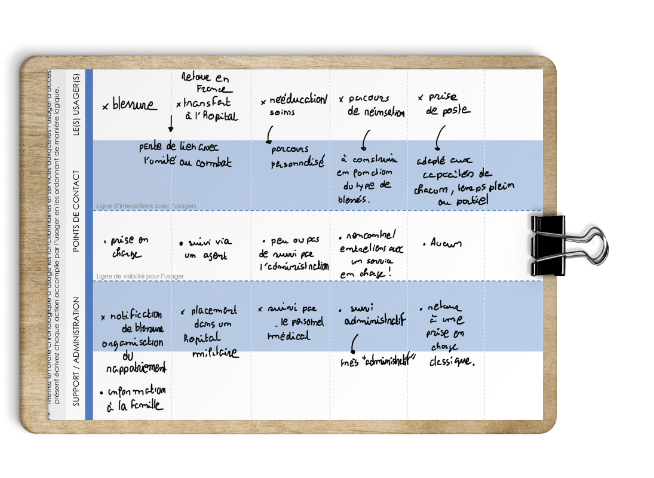 LE(S) USAGER(S)
x blessure
Retour en
France
x transfert
à l'Hopital
x rééducation/
soins
x parcours
de réinsertion
x prise
de poste
perte de lien avec
l'unité au combat
parcours
personnalisé
à construire
en fonction
du type de
blessés.
adapté aux
capacités de
chacun, temps plein
ou partiel
Ligne d'interactions avec l'usager
POINTS DE CONTACT
• prise en
charge
• suivi via
un agent
• peu ou pas
de suivi par
l'administration
• rencontre/
entretiens avec
un service
en charge!
• Aucun
Ligne de visibilité pour l'usager
SUPPORT / ADMINISTRATION
x notification
de blessure
organisation
du
rappatriement
• information
à la famille
x placement
dans un
hopital
militaire
x suivi par
le personel
médical
• suivi
administratif
très "administratif"
• retour
à une
prise en
charge
classique.
présent écrivez chaque action accomplie par l'usager en les ordonnant de manière logique.